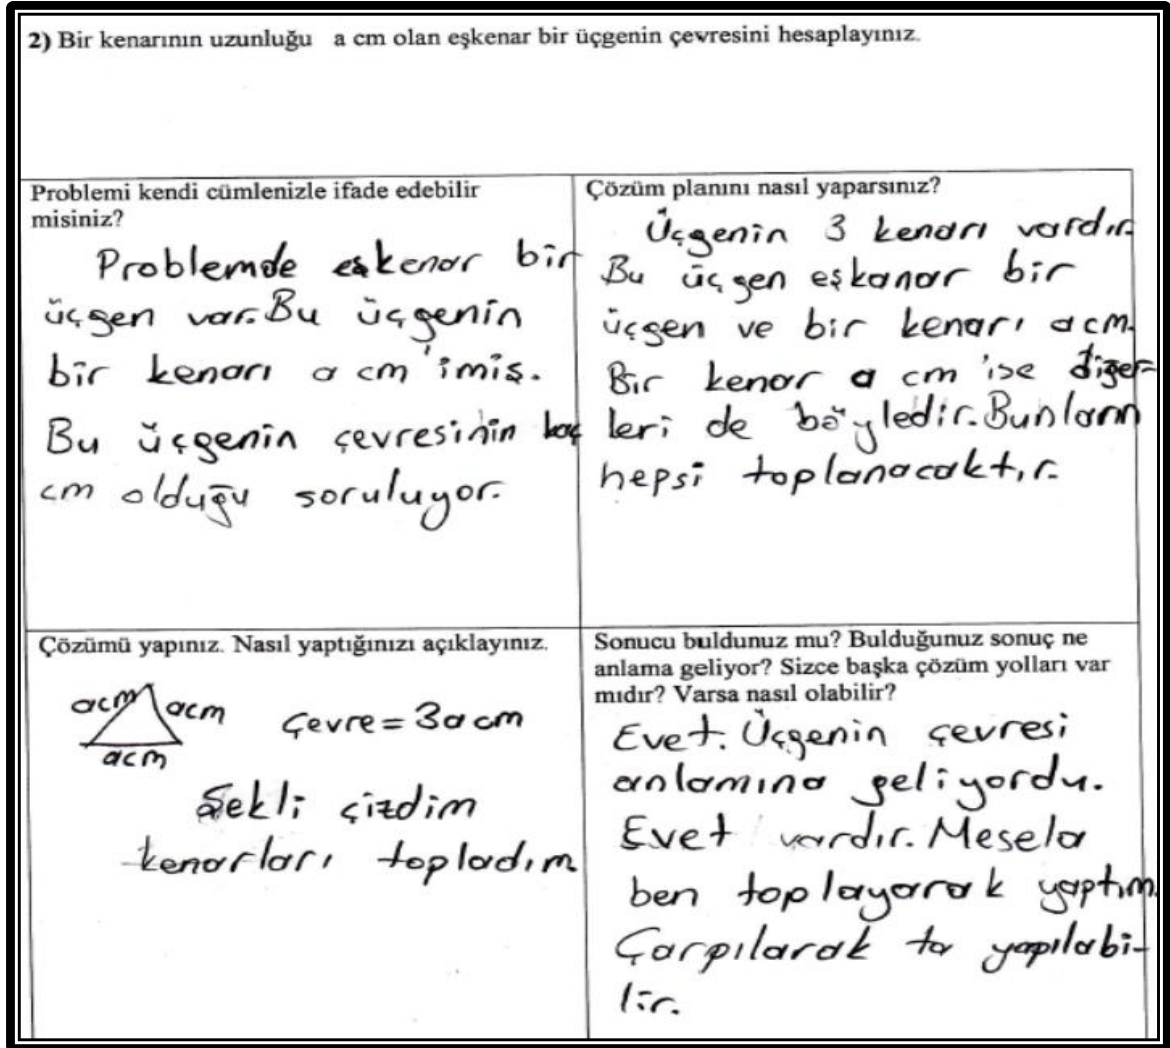 2) Bir kenarının uzunluğu a cm olan eşkenar bir üçgenin çevresini hesaplayınız.
Problemi kendi cümlenizle ifade edebilir
misiniz?
Problemde eşkenar bir
üçgen var. Bu üçgenin
bir kenarı a cm'imiş.
Bu üçgenin çevresinin kaç
cm olduğu soruluyor.
Çözüm planını nasıl yaparsınız?
Üçgenin 3 kenarı vardır.
Bu üçgen eşkanar bir
üçgen ve bir kenarı a cm.
Bir kenar a cm 'ise diğer-
leri de böyledir. Bunların
hepsi toplanacaktır.
Çözümü yapınız. Nasıl yaptığınızı açıklayınız.
acm acm
acm
Çevre = 3a cm
Şekli çizdim
kenarları topladım
Sonucu buldunuz mu? Bulduğunuz sonuç ne
anlama geliyor? Sizce başka çözüm yolları var
mıdır? Varsa nasıl olabilir?
Evet. Üçgenin çevresi
anlamına geliyordu.
Evet vardır. Mesela
ben toplayarak yaptım.
Çarpılarak ta yapılabi-
lir.